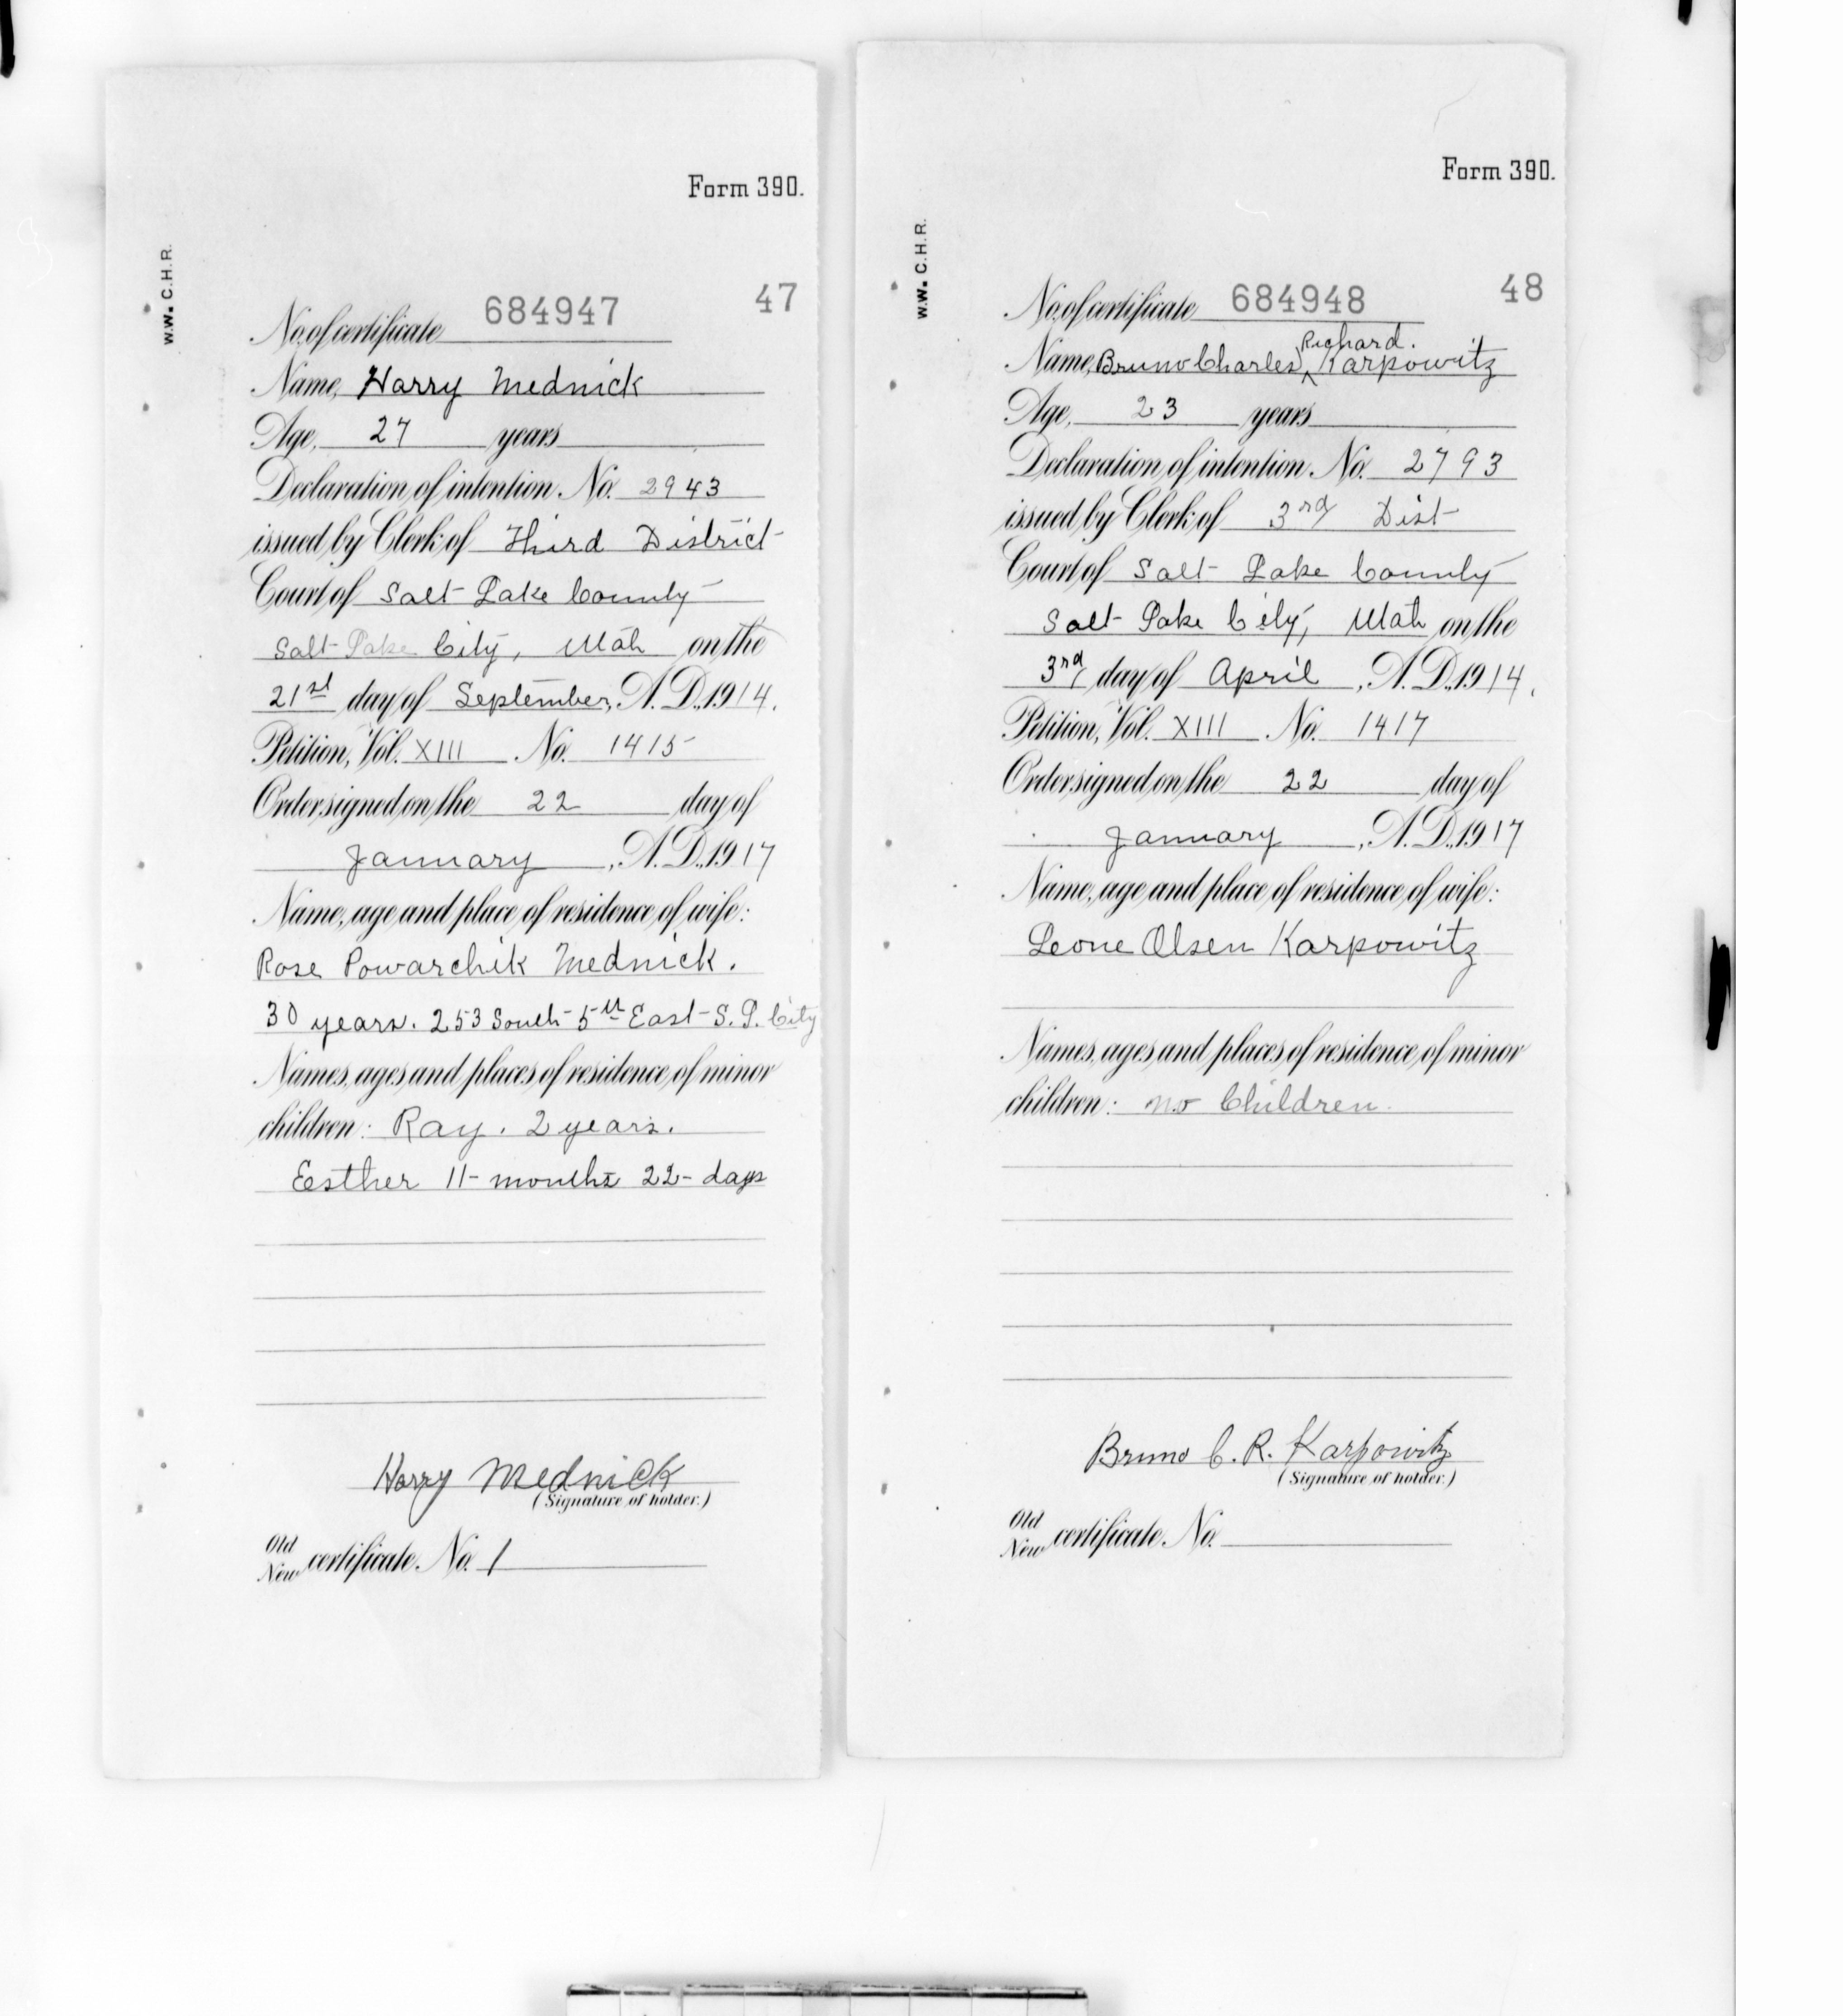 Form 390.
W.W. C.H.R.
47
No. of certificate 684947
Name, Harry Mednick
Age, 27 years
Declaration of intention No. 2943
issued by Clerk of Third District
Court of Salt Lake County
Salt Lake City, Utah on the
21st day of September, A.D. 1914.
Petition, Vol. XIII No. 1415
Order signed on the 22 day of
January, A.D. 1917
Name, age and place of residence of wife:
Rose Powarchik Mednick.
30 years. 253 South 5th East S.L. City
Names, ages and places of residence of minor
children: Ray. 2 years.
Eesther 11- months 22- days
Harry Mednick
(Signature of holder.)
Old
New certificate No. /
Form 390.
W.W. C.H.R.
48
No. of certificate 684948
Richard.
Name, Bruno Charles ^ Karpowitz
Age, 23 years
Declaration of intention No. 2793
issued by Clerk of 3rd Dist
Court of Salt Lake County
Salt Lake City, Utah on the
3rd day of April, A.D. 1914.
Petition, Vol. XIII No. 1417
Order signed on the 22 day of
January, A.D. 1917
Name, age and place of residence of wife:
Leone Olsen Karpowitz
Names, ages and places of residence of minor
children: no Children.
Bruno C. R. Karpowitz
(Signature of holder.)
Old
New certificate No.